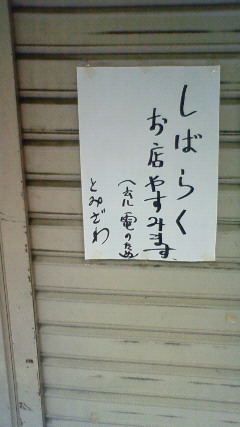 しばらく
お店やすみます
(玄ル電のため)
とみざわ